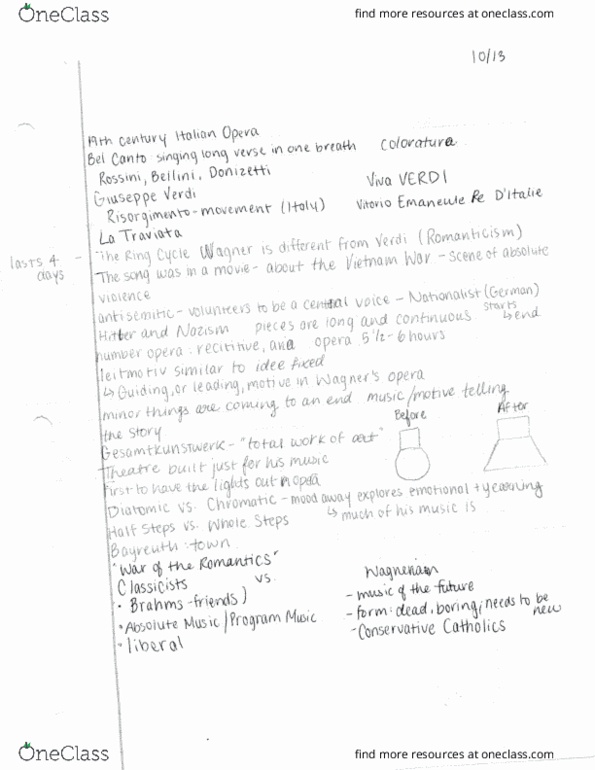 OneClass
find more resources at oneclass.com
10/13
19th century Italian Opera
Bel Canto singing long verse in one breath coloratura
Rossini, Bellini, Donizetti
Giuseppe Verdi Viva VERDI
Risorgimento-movement (Italy) Vitorio Emanewle Re D'Italie
La Traviata
lasts 4 days - The Ring Cycle Wagner is different from Verdi (Romanticism)
The song was in a movie - about the Vietnam War - scene of absolute
violence
antisemitic - volunteers to be a central voice - Nationalist (German)
Hitler and Nazism pieces are long and continuous starts ↳ end
number opera: recititive, and opera 5 1/2 - 6 hours
leitmotiv similar to idee fixed
↳ Guiding, or leading, motive in Wagner's opera
minor things are coming to an end music/motive telling
the story
Before After
Gesamtkunstwerk - "total work of art"
Theatre built just for his music
First to have the lights out in opera
Diatomic vs. Chromatic - mood away explores emotional + yearning
Half Steps vs. Whole Steps ↳ much of his music is
Bayreuth: town
"War of the Romantics"
Classicists vs. Wagnerian
• Brahms - friends) - music of the future
• Absolute Music / Program Music - form: dead, boring, needs to be new
• liberal - Conservative Catholics
OneClass
find more resources at oneclass.com